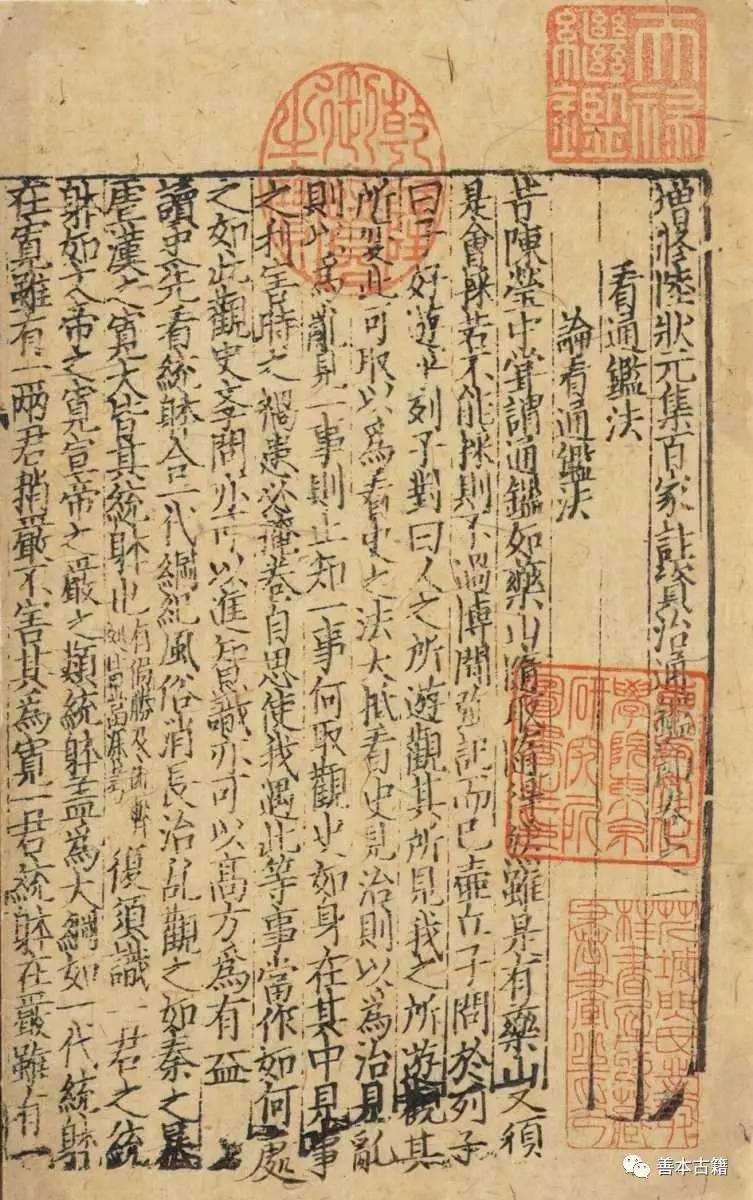 天祿繼鑑
乾隆御覽之寶
增修陸狀元集百家註資治通鑑節卷之一
看通鑑法
論看通鑑法
昔陳瑩中嘗謂通鑑如藥山隨取隨得然雖是有藥山又須
是會採若不能採則不過博聞強記而已壷丘子問於列子
曰子好遊乎列子對曰人之所遊觀其所見我之所遊觀其
所變此可取以爲看史之法大抵看史見治則以爲治見亂
則以爲亂見一事則止知一事何取觀史如身在其中見事
之利害時之禍患必掩卷自思使我遇此等事當作如何處
之如此觀史學問亦可以進智識亦可以高方爲有益
讀史先看統躰合一代綱紀風俗消長治乱觀之如秦之暴
虐漢之寬大皆其統躰也有偏勝及流弊處皆當深考復須識一君之統
躰如文帝之寬宣帝之嚴之類統躰盖爲大綱如一代統躰
在寬雖有一兩君稍嚴不害其爲寬一君統躰在嚴雖有一
東方文化學院東京研究所圖書之印
善本古籍